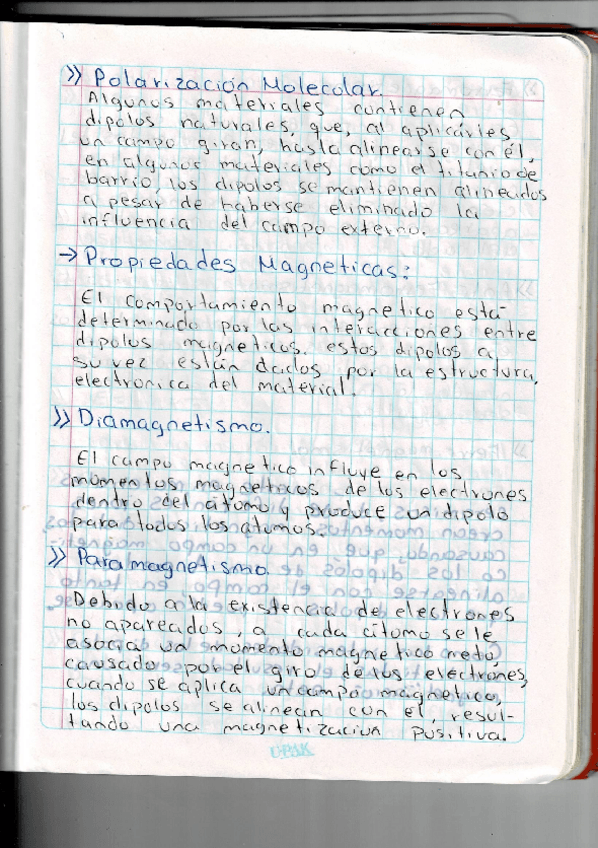 >> Polarización Molecular.
Algunos materiales contienen
dipolos naturales, que, al aplicarles
un campo giran, hasta alinearse con él,
en algunos materiales como el titanio de
barrio, los dipolos se mantienen alineados
a pesar de haberse eliminado la
influencia del campo externo.
→ Propiedades Magneticas:
El comportamiento magnetico está
determinado por las interacciones entre
dipolos magneticos. estos dipolos a
su vez están dados por la estructura
electronica del material.
>> Diamagnetismo.
El campo magnetico influye en los
momentos magneticos de los electrones
dentro del átomo y produce un dipolo
para todos los atomos.
>> Paramagnetismo.
Debido a la existencia de electrones
no apareados, a cada átomo se le
asocia un momento magnetico neto,
causado por el giro de los eléctrones,
cuando se aplica un campo magnetico,
los dipolos se alinean con él, resul-
tando una magnetización positiva.